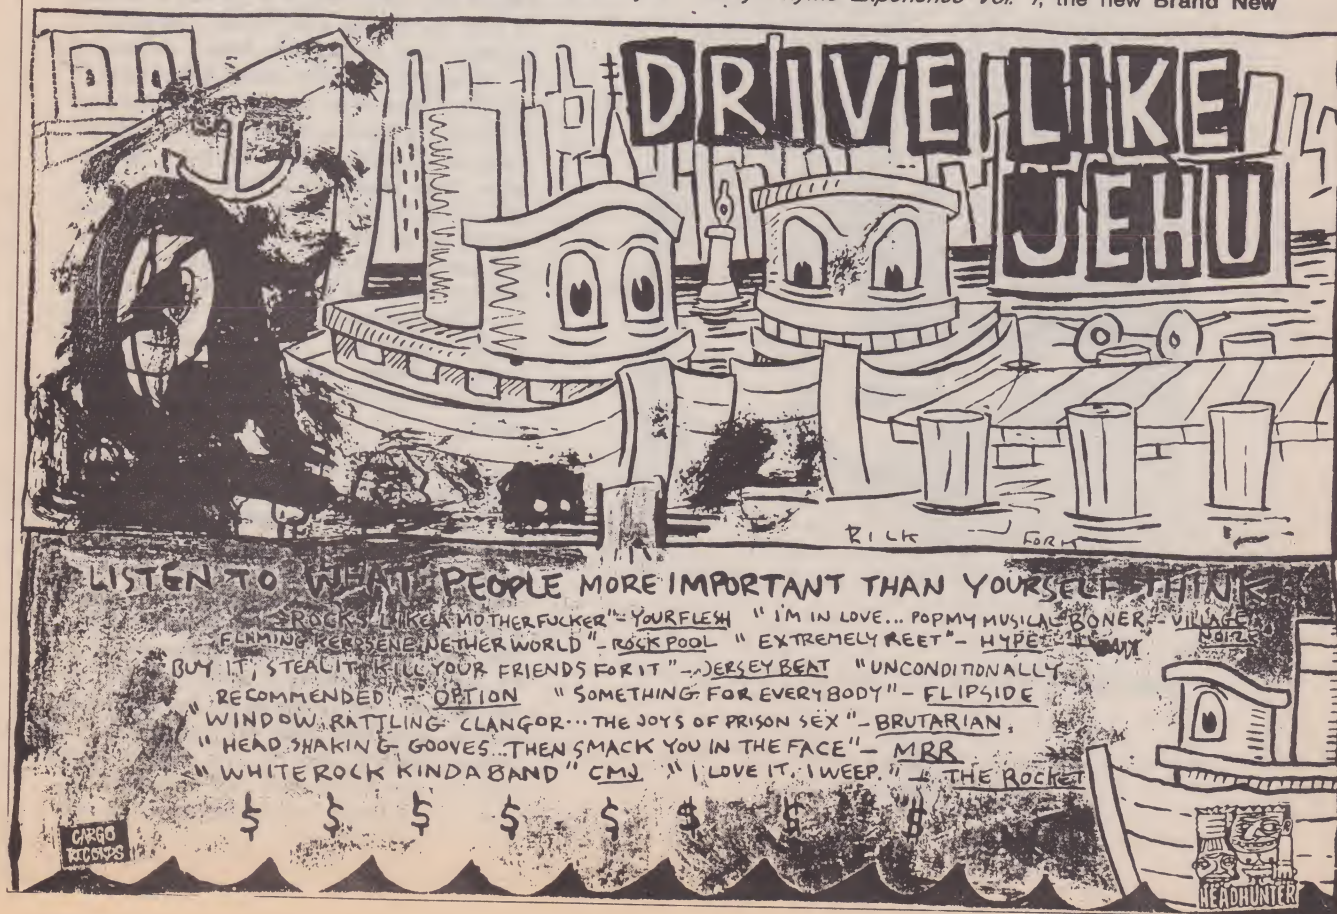 Experience Vol. 1, the new Brand New
DRIVE LIKE
JEHU
RICK FORK
LISTEN TO WHAT PEOPLE MORE IMPORTANT THAN YOURSELF THINK
ROCKS LIKE A MOTHERFUCKER"- YOUR FLESH "I'M IN LOVE... POP MY MUSICAL BONER - VILLAGE NOIZE
FLAMING KEROSENE NETHERWORLD"- ROCKPOOL "EXTREMELY REET"- HYPE
BUY IT, STEAL IT, KILL YOUR FRIENDS FOR IT"- JERSEY BEAT "UNCONDITIONALLY
RECOMMENDED"- OPTION "SOMETHING FOR EVERYBODY"- FLIPSIDE
"WINDOW RATTLING CLANGOR... THE JOYS OF PRISON SEX"- BRUTARIAN,
"HEAD SHAKING GOOVES...THEN SMACK YOU IN THE FACE"- MRR
"WHITE ROCK KINDA BAND" CMJ "I LOVE IT. I WEEP."- THE ROCKET
$ $ $ $ $ $ $ $
CARGO
RECORDS
HEADHUNTER